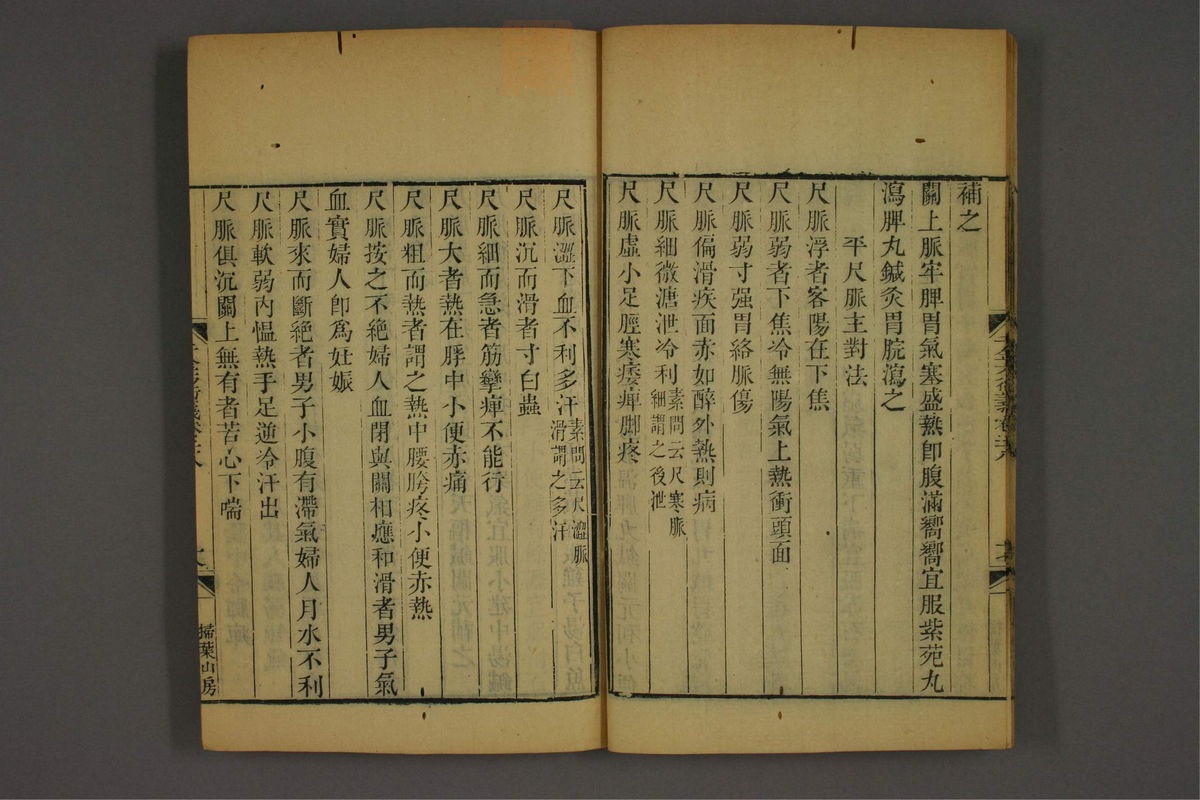 補之
關上脈牢脾胃氣塞盛熱卽腹滿嚮嚮宜服紫苑丸
瀉脾丸鍼灸胃脘瀉之
平尺脈主對法
尺脈浮者客陽在下焦
尺脈弱者下焦冷無陽氣上熱衝頭面
尺脈弱寸强胃絡脈傷
尺脈偏滑疾面赤如醉外熱則病
尺脈細微溏泄冷利素問云尺寒脈細謂之後泄
尺脈虛小足脛寒痿痺脚疼
尺脈澀下血不利多汗素問云尺澀脈滑謂之多汗
尺脈沉而滑者寸白蟲
尺脈細而急者筋攣痺不能行
尺脈大者熱在脬中小便赤痛
尺脈粗而熱者謂之熱中腰胯疼小便赤熱
尺脈按之不絶婦人血閉與關相應和滑者男子氣
血實婦人卽爲妊娠
尺脈來而斷絕者男子小腹有滯氣婦人月水不利
尺脈軟弱內愠熱手足逆冷汗出
尺脈俱沉關上無有者苦心下喘
掃葉山房